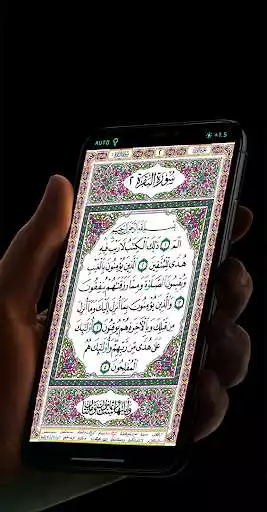 AUTO
1.5
٢
سُورَةُ البَقَرَة ٢
بِسْمِ اللَّهِ الرَّحْمَٰنِ الرَّحِيمِ
الٓمٓ ۝١ ذَٰلِكَ ٱلْكِتَٰبُ لَا رَيْبَ فِيهِ
هُدًى لِّلْمُتَّقِينَ ۝٢ ٱلَّذِينَ يُؤْمِنُونَ بِٱلْغَيْبِ
وَيُقِيمُونَ ٱلصَّلَوٰةَ وَمِمَّا رَزَقْنَٰهُمْ يُنفِقُونَ ۝٣
وَٱلَّذِينَ يُؤْمِنُونَ بِمَآ أُنزِلَ إِلَيْكَ وَمَآ أُنزِلَ
مِن قَبْلِكَ وَبِٱلْءَاخِرَةِ هُمْ يُوقِنُونَ ۝٤ أُو۟لَٰٓئِكَ
عَلَىٰ هُدًى مِّن رَّبِّهِمْ وَأُو۟لَٰٓئِكَ هُمُ
ٱلْمُفْلِحُونَ ۝٥